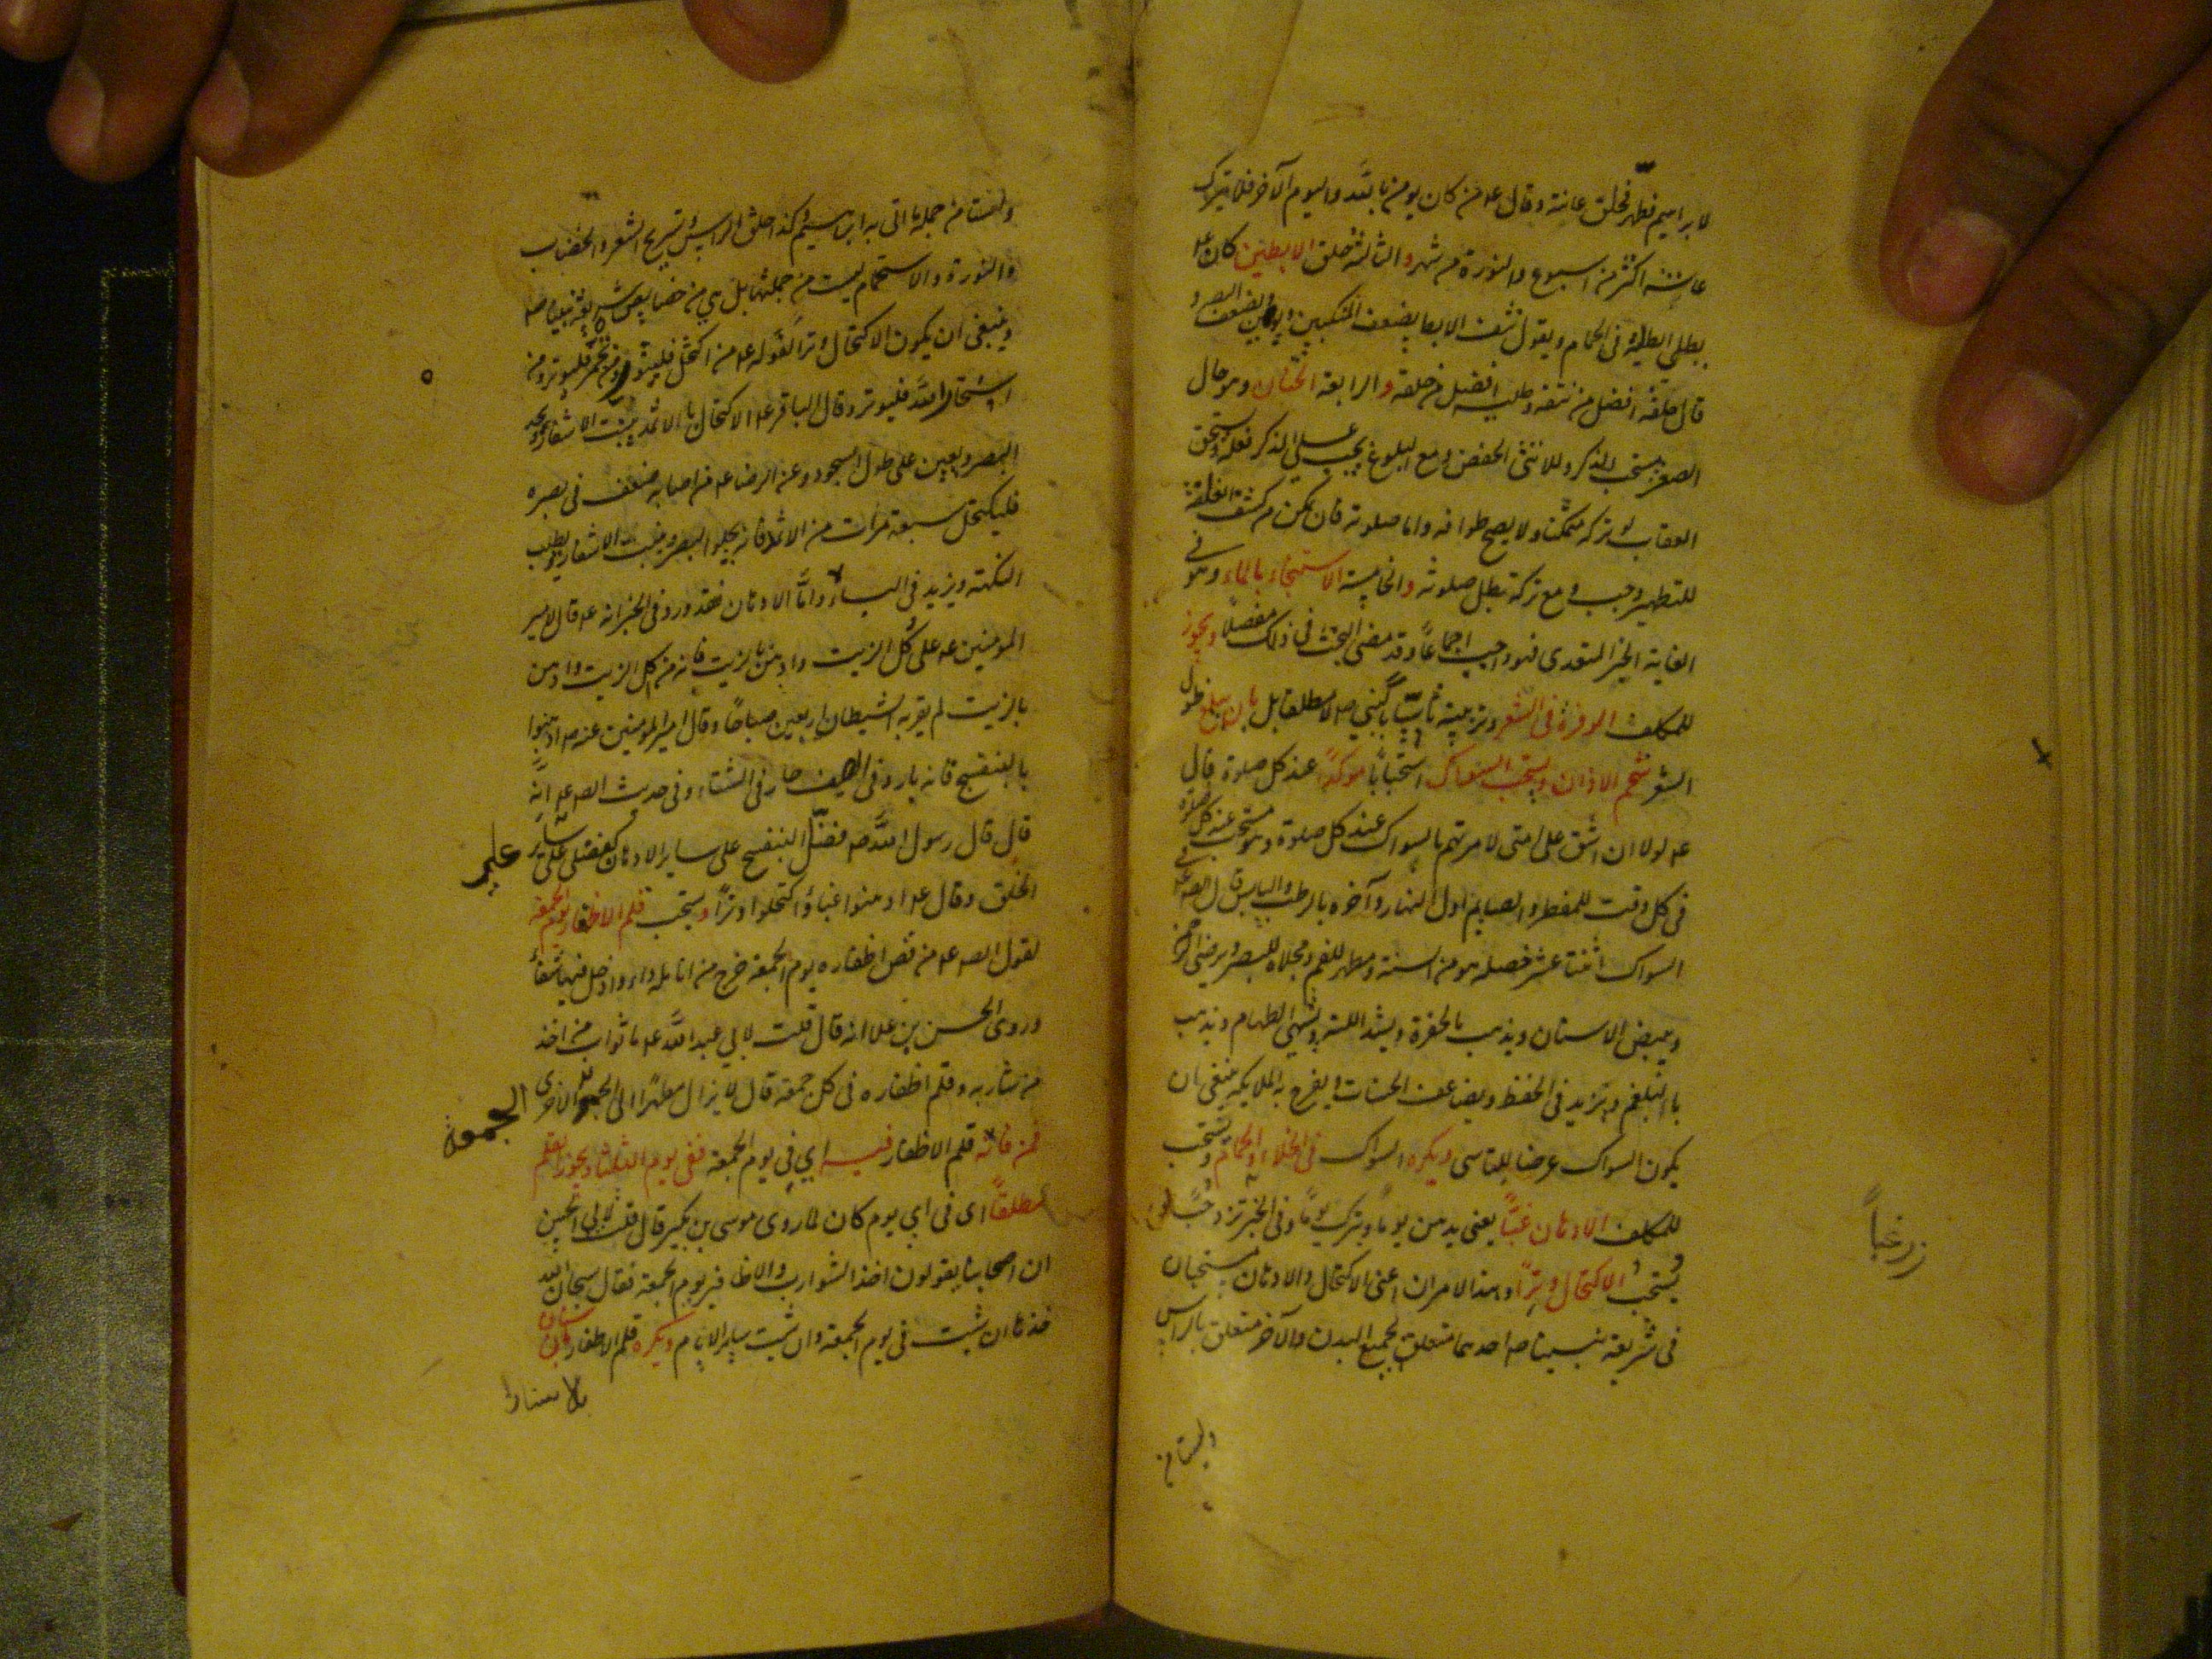 لابراهيم تطهر فحلق عانته وقال عه من كان يومن بالله واليوم الآخر فلا يترك
عانته اكثر من اسبوع والنورة من شهر والثالثة حلق الابطين كان عه
يطلي ابطيه في الحمام ويقول نتف الابط يضعف المنكبين ويوهن ويضعف البصر و
قال حلقه افضل من نتفه وطليه افضل من حلقه والرابعة الختان وهو حال
الصغر يستحب للذكر وللانثى الخفض ومع البلوغ يجب على الذكر فعله ويستحق
العقاب لو تركه متمكنا ولا يصح طوافه واما صلوته فان تمكن من كشف الغلفة
للتطهير وجب ومع تركه تبطل صلوته والخامسة الاستنجاء بالماء وهو في
الغاية الخير المتعدى فهو واجب اجماعاً وقد مضى البحث في ذلك مفصلا ويجوز
للمكلف الوفرة في الشعر وتربيته تاسياً بالنبي صه لا مطلقا بل بان يبلغ طول
الشعر شحم الاذان ويستحب السواك استحباباً موكداً عند كل صلوة قال
عه لولا ان اشق على امتى لامرتهم بالسواك عند كل صلوة وهو مستحب عند كل صلوة
في كل وقت للمفطر والصايم اول النهار وآخره بالرطب واليابس قال الصه عه في
السواك اثنتا عشر خصلة هو من السنة ومطهر للفم ومجلاة للبصر ويرضى الرحمن
ويبيض الاسنان ويذهب بالحفرة ويشد اللثة ويشهى الطعام ويذهب
بالبلغم ويزيد في الحفظ ويضاعف الحسنات ويفرح به الملايكة ينبغى ان
يكون السواك عرضا للتاسى ويكره السواك في الخلاء والحمام ويستحب
للمكلف الادهان غبّاً يعنى يدهن يوماً ويترك يوماً وفي الخبر تزدد حبّاً
زر غباً
ويستحب الاكتحال وتراً وهذا الامران اعنى الاكتحال والادهان مستحبان
في شريعة نبينا صه احدهما متعلق بجميع البدن والآخر متعلق بالراس
وليستا من
وليستا من جملة ما اتى به ابرهيم كذا حلق الراس وتسريح الشعر والخضاب
والنورة والاستحمام ليست من جملتها بل هي من خصايص شريعة نبينا صه
وينبغى ان يكون الاكتحال وتراً لقوله عه من اكتحل فليوتر ومن تجمر فليوتر ومن
استخار الله فليوتر وقال الباقر عه الاكتحال بالاثمد ينبت الاشفار ويحد
البصر ويعين على طول السجود وعن الرضا عه من اصابه ضعف في بصره
فليكتحل سبعة مرات من الاثمد فانه يجلوا البصر وينبت الاشفار ويطيب
النكهة ويزيد في الباه واما الادهان فقد ورد في الخبر انه عه قال لامير
المومنين عه على كل الزيت وادهن بالزيت فانه من اكل الزيت وادهن
بالزيت لم يقربه الشيطان اربعين صباحاً وقال امير المومنين عنه صه ادهنوا
بالبنفسج فانه بارد في الصيف حار في الشتاء وفي حديث الصه عه انّه
قال قال رسول الله صه فضّل البنفسج على ساير الادهان كفضلى على ساير
الخلق وقال عه ادهنوا غباً واكتحلوا وتراً ويستحب قلم الاظفار يوم الجمعة
لقول الصه عه من قص اظفاره يوم الجمعة خرج من انامله داء وادخل فيها شفاء
وروى الحسن بن علا انه قال قلت لابي عبد الله عه ما ثواب من اخذ
من شاربه وقلم اظفاره في كل جمعة قال لا يزال مطهراً الى الجمعة الاخرى
الجمعة
فمن فاته قلم الاظفار فيه اي في يوم الجمعة ففي يوم الثلثا ويجوز القلم
مطلقاً اى في اي يوم كان لما روى موسى بن بكير قال قلت لابي الحسن
ان اصحابنا يقولون اخذ الشوارب والاظافير يوم الجمعة فقال سبحان الله
خذها ان شئت في يوم الجمعة وان شئت ساير الايام ويكره قلم الاظفار
بالاسنان